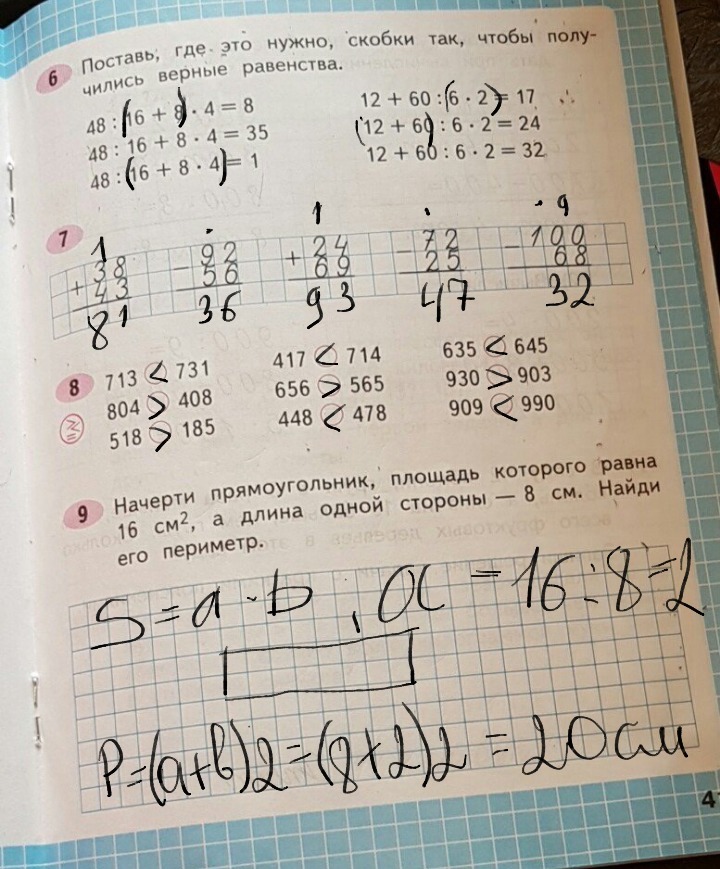 6 Поставь, где это нужно, скобки так, чтобы полу-
чились верные равенства.
48 : (16 + 8) · 4 = 8
48 : 16 + 8 · 4 = 35
48 : (16 + 8 · 4) = 1
12 + 60 : (6 · 2) = 17
(12 + 60) : 6 · 2 = 24
12 + 60 : 6 · 2 = 32
7
1 · 1 · · 9
38 − 92 24 − 72 − 100
+ 43 56 + 69 25 68
81 36 93 47 32
8 713 < 731
804 > 408
518 > 185
417 < 714
656 > 565
448 < 478
635 < 645
930 > 903
909 < 990
9 Начерти прямоугольник, площадь которого равна
16 см², а длина одной стороны — 8 см. Найди
его периметр.
S = a · b , a = 16 : 8 = 2
P = (a+b)2 = (8+2)2 = 20 см
4